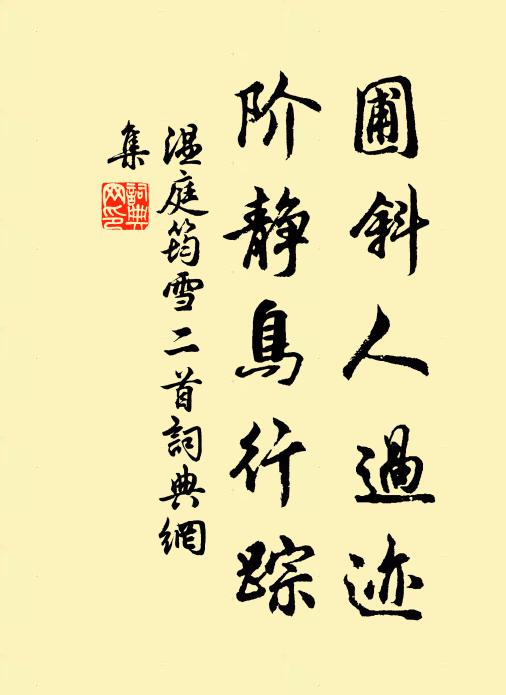 圃斜人過迹
阶静鳥行踪
温庭筠雪二首詞典網
集
詞典
网印